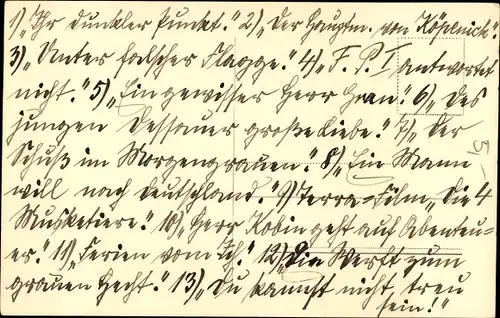 1) „Ihr dunkler Punkt." 2) „Der Hauptm. von Köpenick".
3) „Unter falscher Flagge." 4) „F. P. I antwortet
nicht." 5) „Ein gewisser Herr Gran." 6) „Des
jungen Dessauer große Liebe." 7) „Der
Schuß im Morgengrauen." 8) „Ein Mann
will nach Deutschland." 9) Terra-Film „Die 4
Musketiere." 10) „Herr Kobin geht auf Abenteu-
er." 11) „Ferien vom Ich." 12) „Die Werft zum
grauen Hecht." 13) „Du kannst nicht treu
sein!"
5-